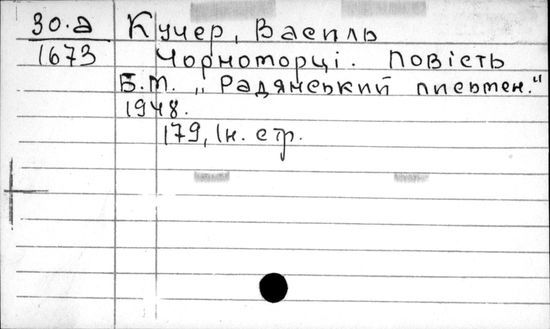 30.а Кучер, Василь
1673 Чорноморці. Повість
Б.М. „Радянський письмен."
1948.
179, Iн. стр.